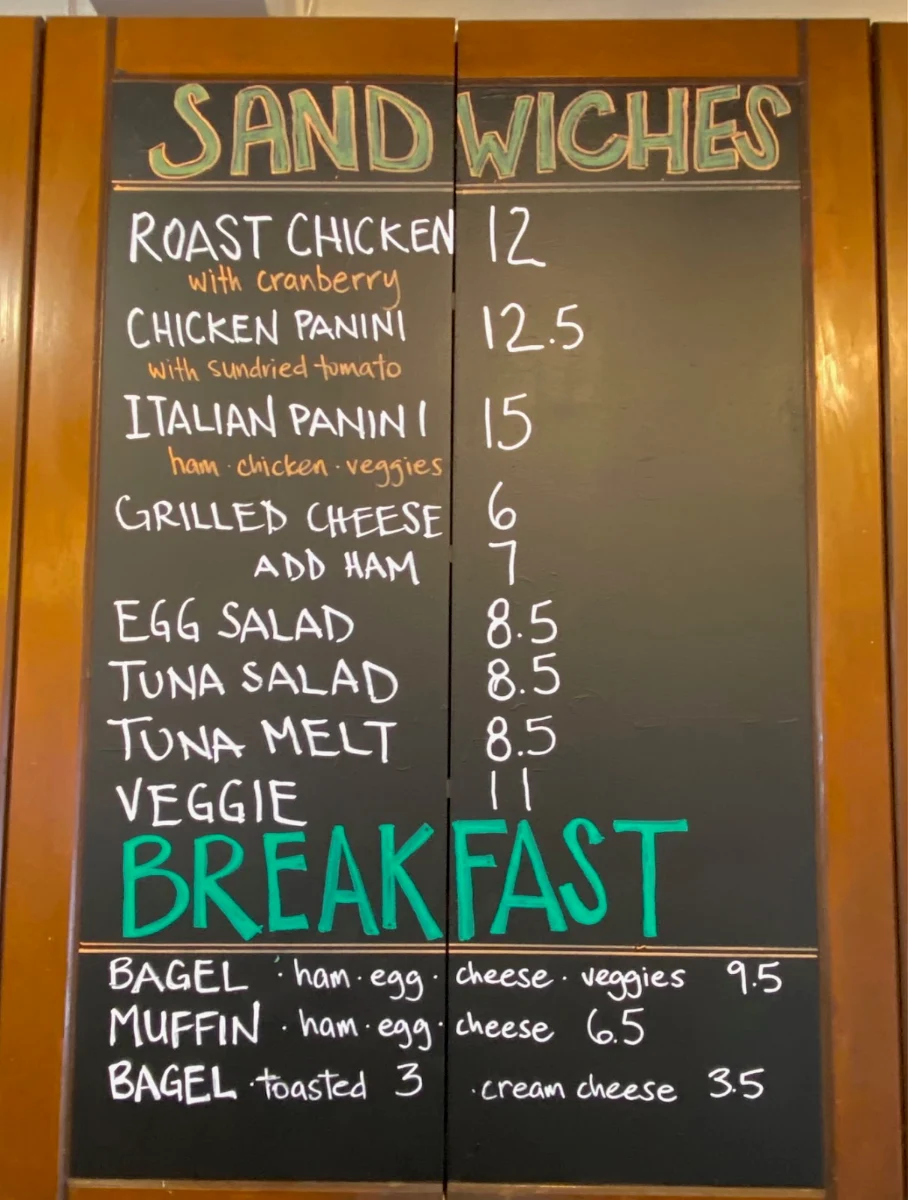 SANDWICHES
ROAST CHICKEN 12
with cranberry
CHICKEN PANINI 12.5
with sundried tomato
ITALIAN PANINI 15
ham · chicken · veggies
GRILLED CHEESE 6
ADD HAM 7
EGG SALAD 8.5
TUNA SALAD 8.5
TUNA MELT 8.5
VEGGIE 11
BREAKFAST
BAGEL · ham · egg · cheese · veggies 9.5
MUFFIN · ham · egg · cheese 6.5
BAGEL · toasted 3 · cream cheese 3.5